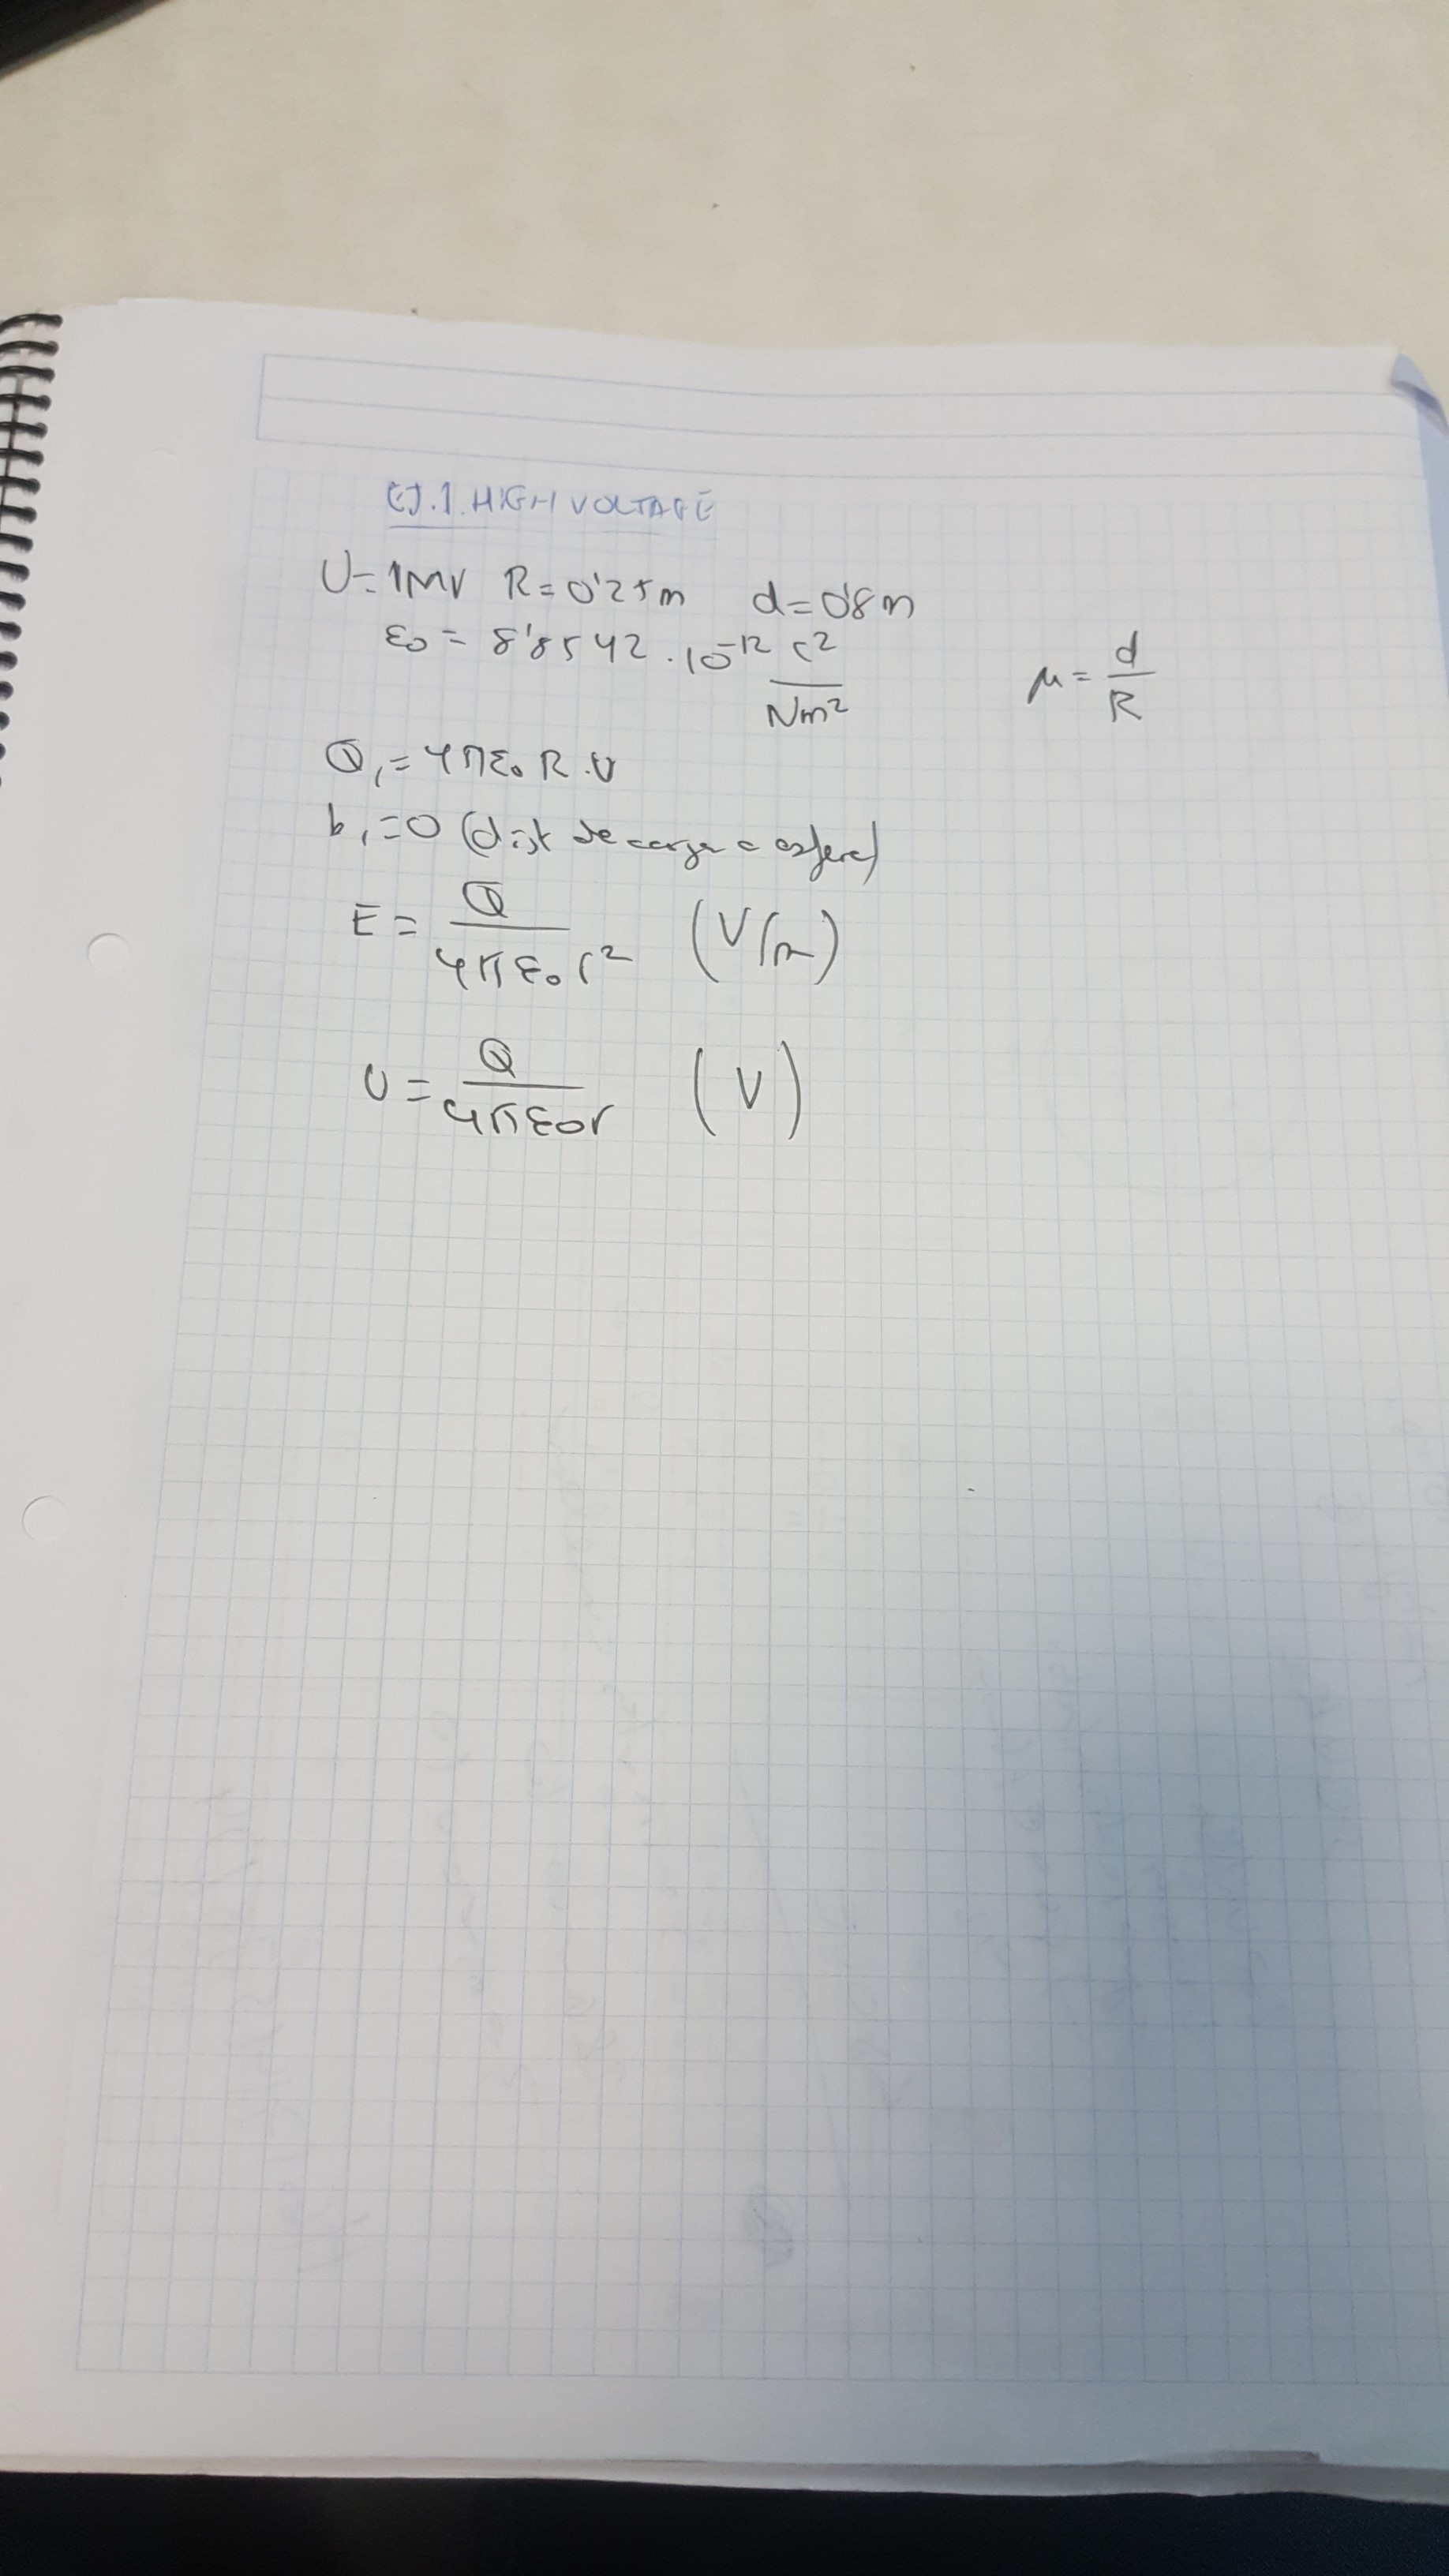 EJ.1. HIGH VOLTAGE
U=1MV R=0'25m d=0'8m
ε0 = 8'8542 · 10^-12 C^2/Nm^2
μ = d/R
Q1 = 4πε0 R·U
b1=0 (dist de carga a esfera)
E = Q/4πε0r^2 (V/m)
U = Q/4πε0r (V)